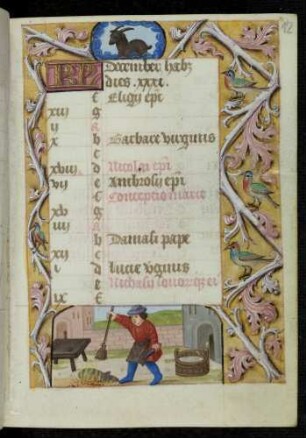 KL December habet
dies .xxxi.
f Eligii epi
xiii g
ii A
x b Barbare virginis
c
xviii d Nicolai epi
vii e Ambrosii epi
f Conceptio marie
xv g
iiii A
b Damasi pape
xii c
i d Lucie virginis
e Nichasii
ix f